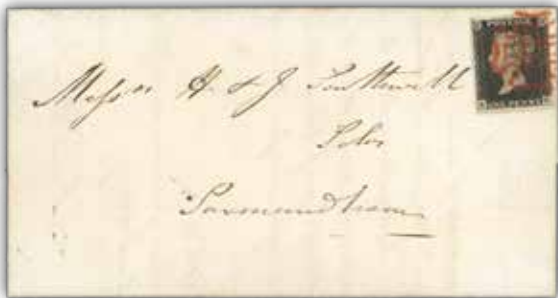 POSTAGE
ONE PENNY
Messrs H & J Southwell
Solrs
Saxmundham